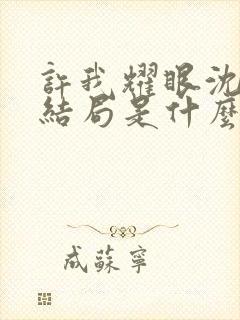 許我耀眼沈
結局是什麼
成蘇寧